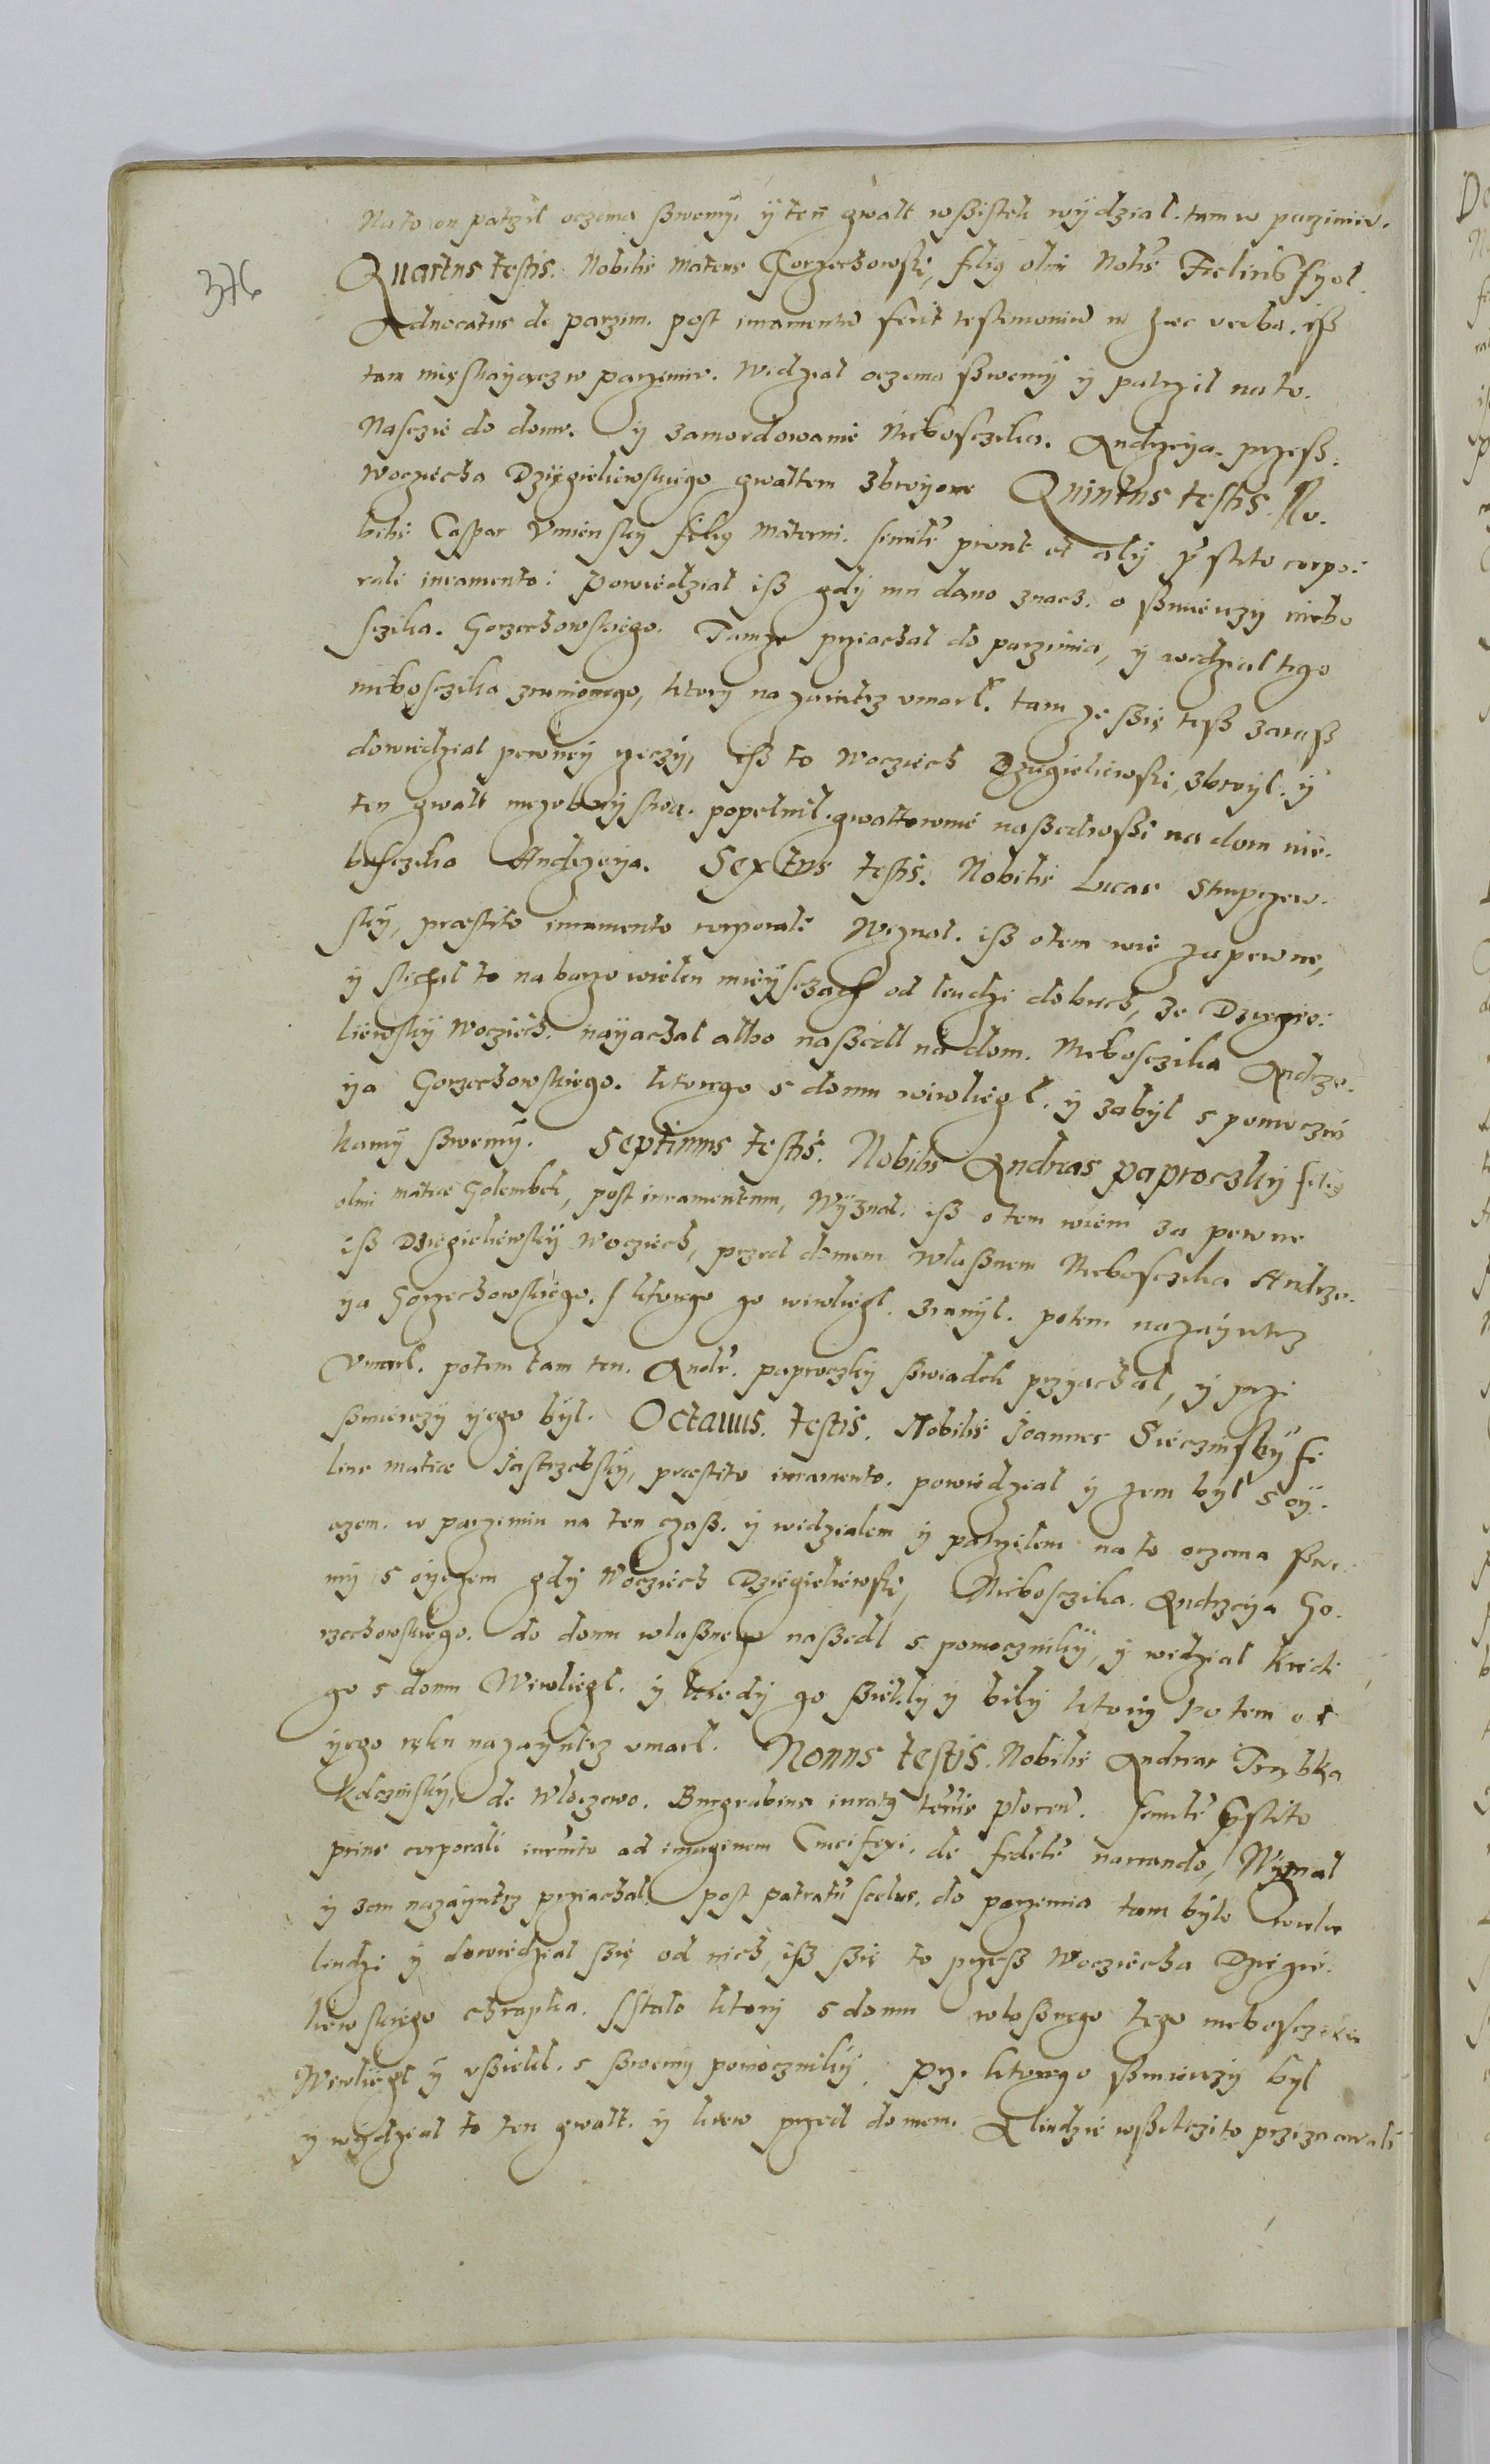 Na to on patrzil oczema ßwemy. y ten gwalt wßistek wydzial. tam w parzimiv.
376
Quartus testis. Nobilis Mateus Gorzechowski, filiq olim Nobis Felicis
Aduocatus de parzim. post iuramentu fecit testimoniu in haec verba. iß
tam mięskayącz w parzimiv. widzial oczema ßwemy y patrzil na to.
Nasczie do domv. y zamordowanie Niebosczika. Andrzeya. przeß.
Woczziecha Dzięgieliewskiego gwaltem zbroyone Quintus testis. No.
bilis Caspar Vmienskiy filiq Materni. similr prout et aliy pstito corpo:
rali iuramento: powiedzial iß gdy mu dano znacz. o ßmierczy niebo
sczika. Gorzechowskiego. Tamze prziachal do parzimia, y widzial tego
niebosczika zranionego, ktory nazaiutrz vmarl. tam ze ßie teß zaraß
dowiedzial pewney rzeczy, iß to Wocziech Dzięgieliewski, zbroyl. y
ten gwalt mezoboystwa. popelnil. gwaltownie naßedwßi na dom nie.
bosczika Andrzeya. Sextus testis. Nobilis Lucas Strupczew.
sky, praestito iuramento corporali Weznal. iß otem wie zapewne,
y slichal to na barzo wielu mieysczach od liudzi dobrich, ze Dzięgie:
liewskiy Wocziech. nayachal albo naßedl na dom. Niebosczika Andrze.
ya Gorzechowskiego. ktorego s domu wiwliegl. y zabyl s pomoczni
kamy ßwemy. Septimus testis. Nobilis Andreas paproczkiy filiq
olim Matiae Golembek, post iuramentum, Wyznal. iß otem wiem za pewne
iß Dzięgieliewskiy Wocziech, przed domem wlaßnem Niebosczika Andrze.
ya Gorzechowskiego. s ktorego go wiwliegl. zranyl. potem nazayutrz
Vmarl. potem tam ten. Andr. paproczkiy ßwiadek przyachal, y przi
ßmierczy yego byl. Octauus. testis. Nobilis Joannes Siecziński fi
lius Matiae Jastrzebskiy, praestito iuramento. powiedzial y zem byl s oy.
czem. w parzimiu na ten czaß. y widzialem y patrzilem na to oczema ßwe
my s oyczem gdy Wocziech Dzięgieliewski, Niebosczika. Andrzeya Go.
rzechowskiego. do domu wlaßnego naßedl s pomoczniky, y widzial kiedi
go s domu Wiwliegl. y kiedy go ßiekly y bily ktory potem od
yego ręku nazayutrz vmarl. Nonus testis. Nobilis Andreas Trzbka
de Wloczewo. Burgrabius iuratq terris plocen. similr pstito
prius corporali iurmto ad imaginem Crucifixi. de fidelr narrando, Wyznal
y zem nazayutrz przyachal. post patratu scelus. do parzimia tam bylo wielu
liudzi y dowiedzial ßię od nich, iß ßie to przeß Wocziecha Dzięgie.
liewskiego chrapka. sstalo ktory s domu wlaßnego tego niebosczika
Wiwliegl y vßiekl. s ßwemy pomocznikiy. prz. ktorego ßmierczy byl
y wydzial to ten gwalt. y krew przed domem. A liudzie wßitczi to priznawali